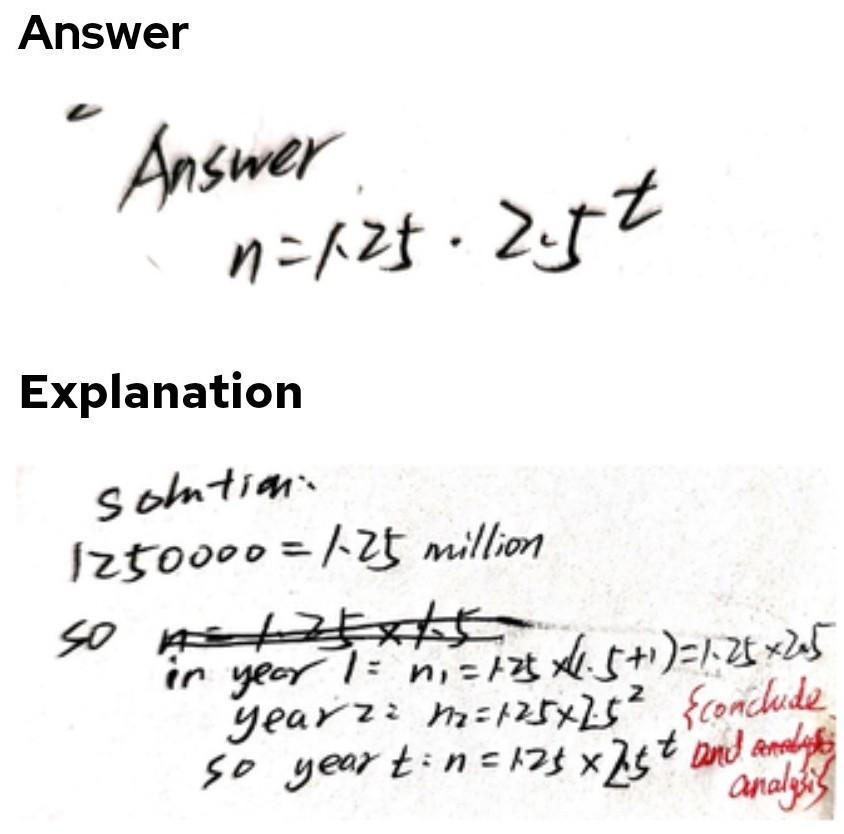 Answer
Answer
n=1.25 · 2.5^t
Explanation
solution:
1250000 = 1.25 million
so n = 1.25 x 1.5
in year 1: n₁ = 1.25 x(1.5+1)=1.25 x2.5
year 2: n₂ = 1.25x2.5²
{conclude
so year t: n = 1.25 x 2.5^t and analysis
analysis